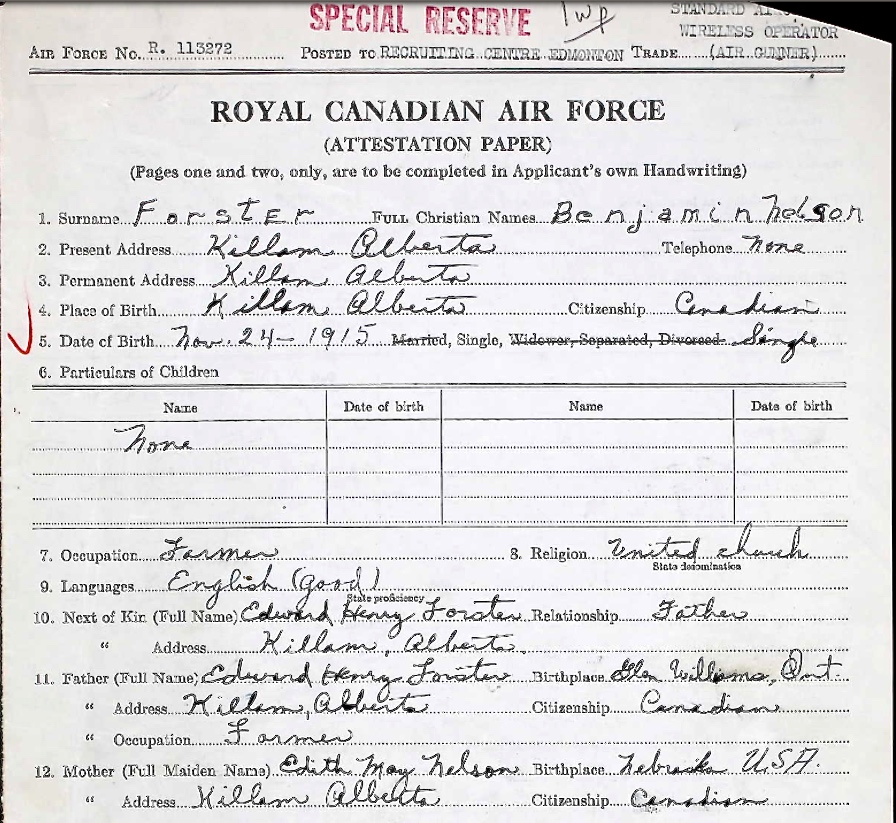 SPECIAL RESERVE
STANDARD
WIRELESS OPERATOR
AIR FORCE No. R. 113272 POSTED TO RECRUITING CENTRE EDMONTON TRADE (AIR GUNNER)
ROYAL CANADIAN AIR FORCE
(ATTESTATION PAPER)
(Pages one and two, only, are to be completed in Applicant's own Handwriting)
1. Surname Forster FULL Christian Names Benjamin Nelson
2. Present Address Killam Alberta Telephone None
3. Permanent Address Killam Alberta
4. Place of Birth Killam Alberta Citizenship Canadian
5. Date of Birth Nov. 24 - 1915 Married, Single, Widower, Separated, Divorced Single
6. Particulars of Children
Name Date of birth Name Date of birth
None
7. Occupation Farmer 8. Religion United church
State denomination
9. Languages English (good)
State proficiency
10. Next of Kin (Full Name) Edward Henry Forster Relationship Father
" Address Killam, Alberta.
11. Father (Full Name) Edward Henry Forster Birthplace Glen Williams, Ont.
" Address Killam, Alberta Citizenship Canadian
" Occupation Farmer
12. Mother (Full Maiden Name) Edith May Nelson Birthplace Nebraska U.S.A.
" Address Killam Alberta Citizenship Canadian